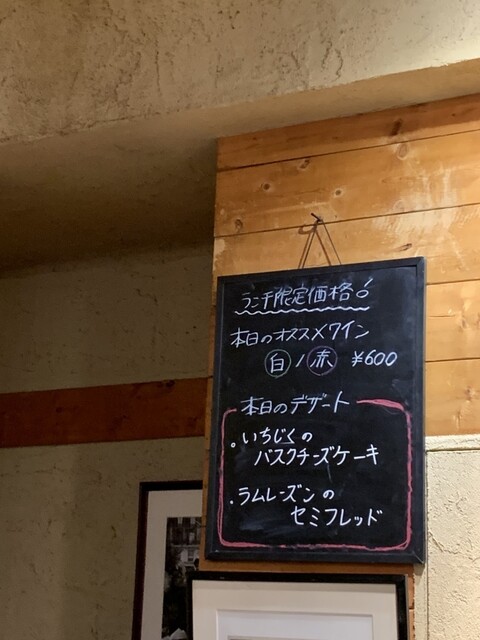 ランチ限定価格!
本日のオススメワイン
白/赤 ¥600
本日のデザート
。いちじくの
バスクチーズケーキ
.ラムレーズンの
セミフレッド